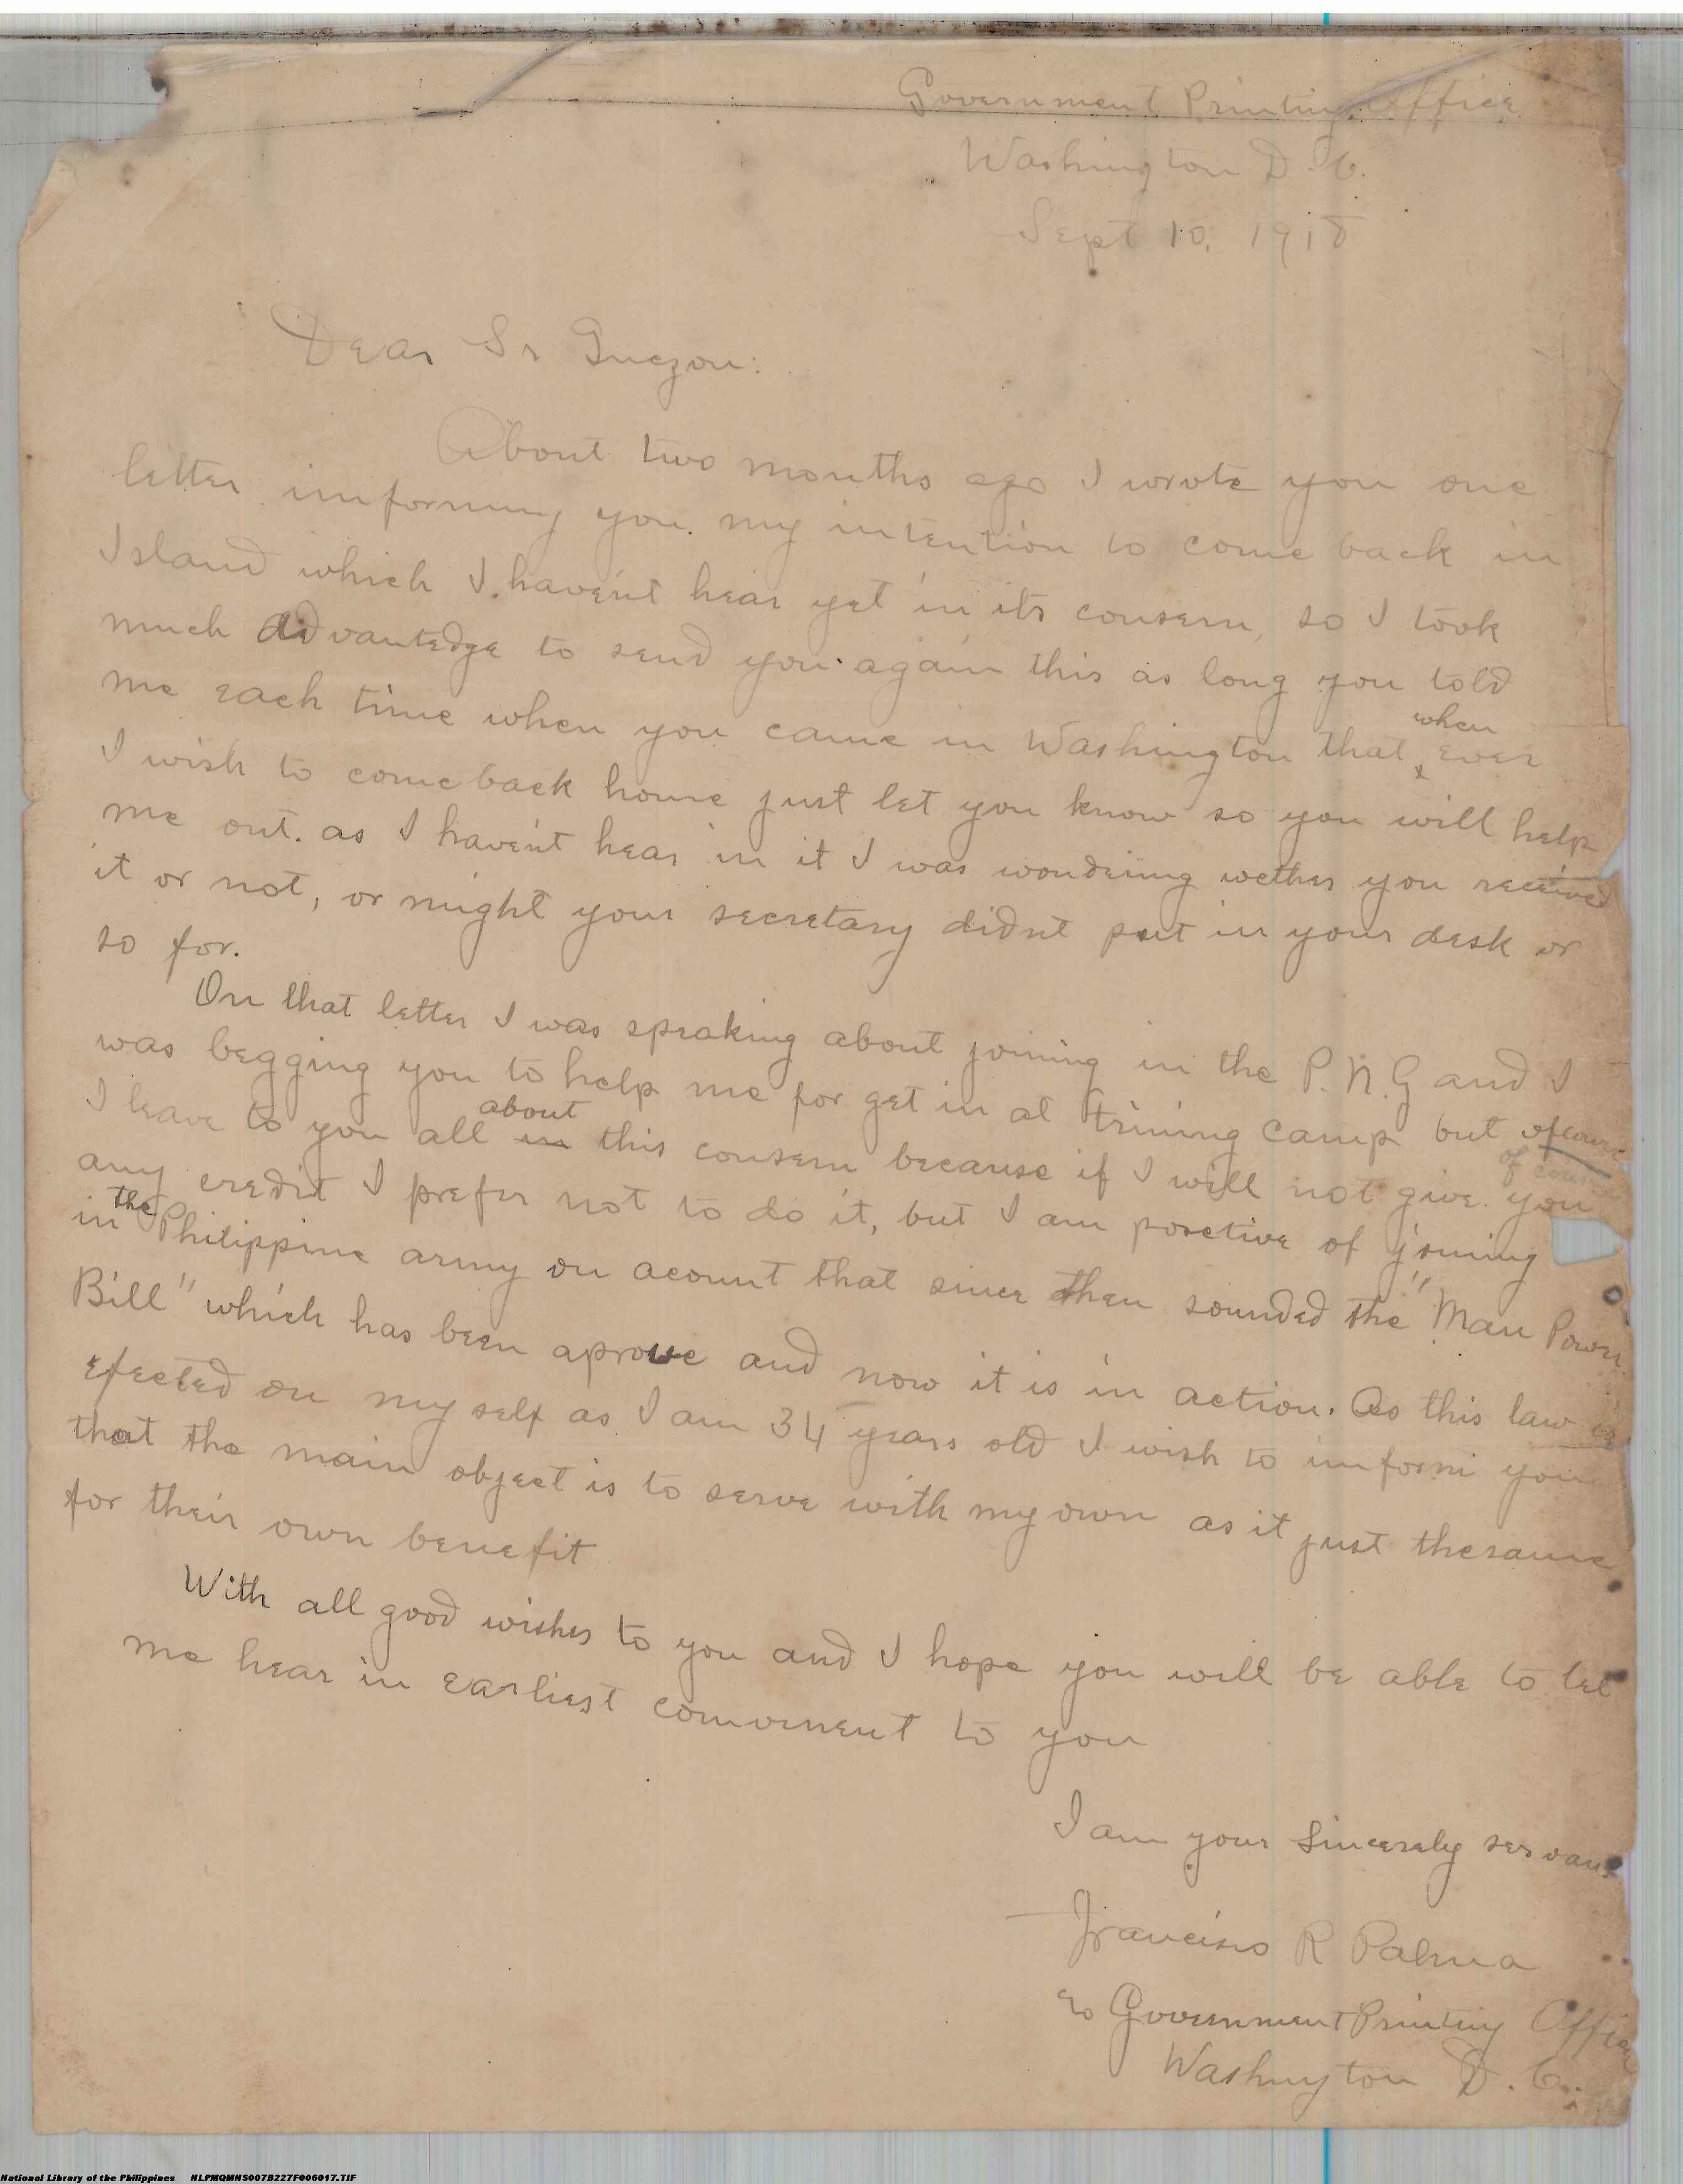 Government Printing Office
Washington D.C.
Sept 10, 1918
Dear Sr Quezon:
About two months ago I wrote you one
letter imforming you my intention to come back in
Island which I haven't hear yet in its consern, so I took
much advantedge to send you again this as long you told
me each time when you came in Washington that when ever
I wish to come back home just let you know so you will help
me out. as I haven't hear in it I was wondering wether you received
it or not, or might your secretary didnt put in your desk or
so for.
On that letter I was speaking about joining in the P.N.G and I
was begging you to help me for get in at trining camp but of course
I leave to you all about this consern because if I will not give you
any credit I prefer not to do it, but I am posetive of joining
in the Philippine army on acount that since then sounded the "Man Power
Bill" which has been aprove and now it is in action. As this law is
efected on my self as I am 34 years old I wish to imform you
that the main object is to serve with my own as it just thesame
for their own benefit
With all good wishes to you and I hope you will be able to let
me hear in earliest convenient to you
I am your Sincerely servant
Francisco R Palma
c/o Government Printing Office
Washington D.C.
National Library of the Philippines NLPMQMNS007B227F006017.TIF